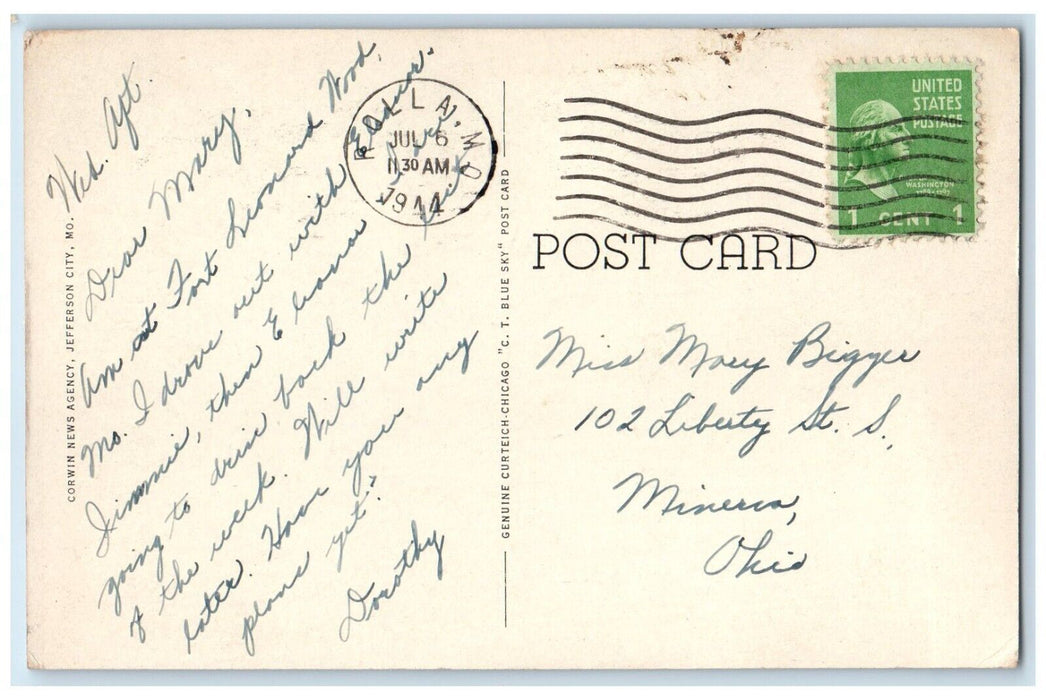 Wed. Aft.
Dear Mary,
Am at Fort Leonard Wood,
Mo. I drove out with Eleanor
Jimmie, then Eleanor I are
going to drive back the
of the week. Will write
later. Have you any
plans yet?
Dorothy
CORWIN NEWS AGENCY, JEFFERSON CITY, MO.
GENUINE CURTEICH-CHICAGO "C. T. BLUE SKY" POST CARD
ROLLA, MO.
JUL 6
11 30 AM
1944
UNITED
STATES
POSTAGE
WASHINGTON
1 CENT 1
POST CARD
Miss Mary Bigger
102 Liberty St. S.
Minerva,
Ohio